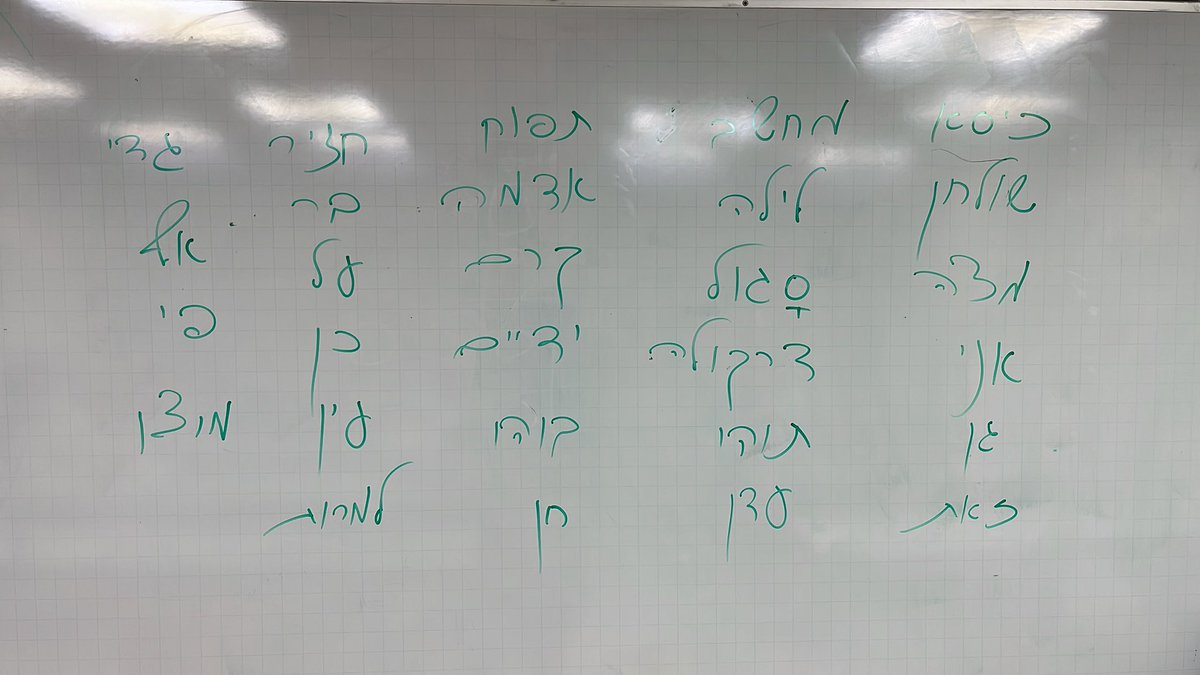 כיסא מחשב תפוח חזיר גדי
שולחן לילה אדמה בר אף
מצה סָגול קרם על פי
אני דרקולה ידיים כן מוצן
גן תוהו בוהו עין
זאת עדן חן למרות